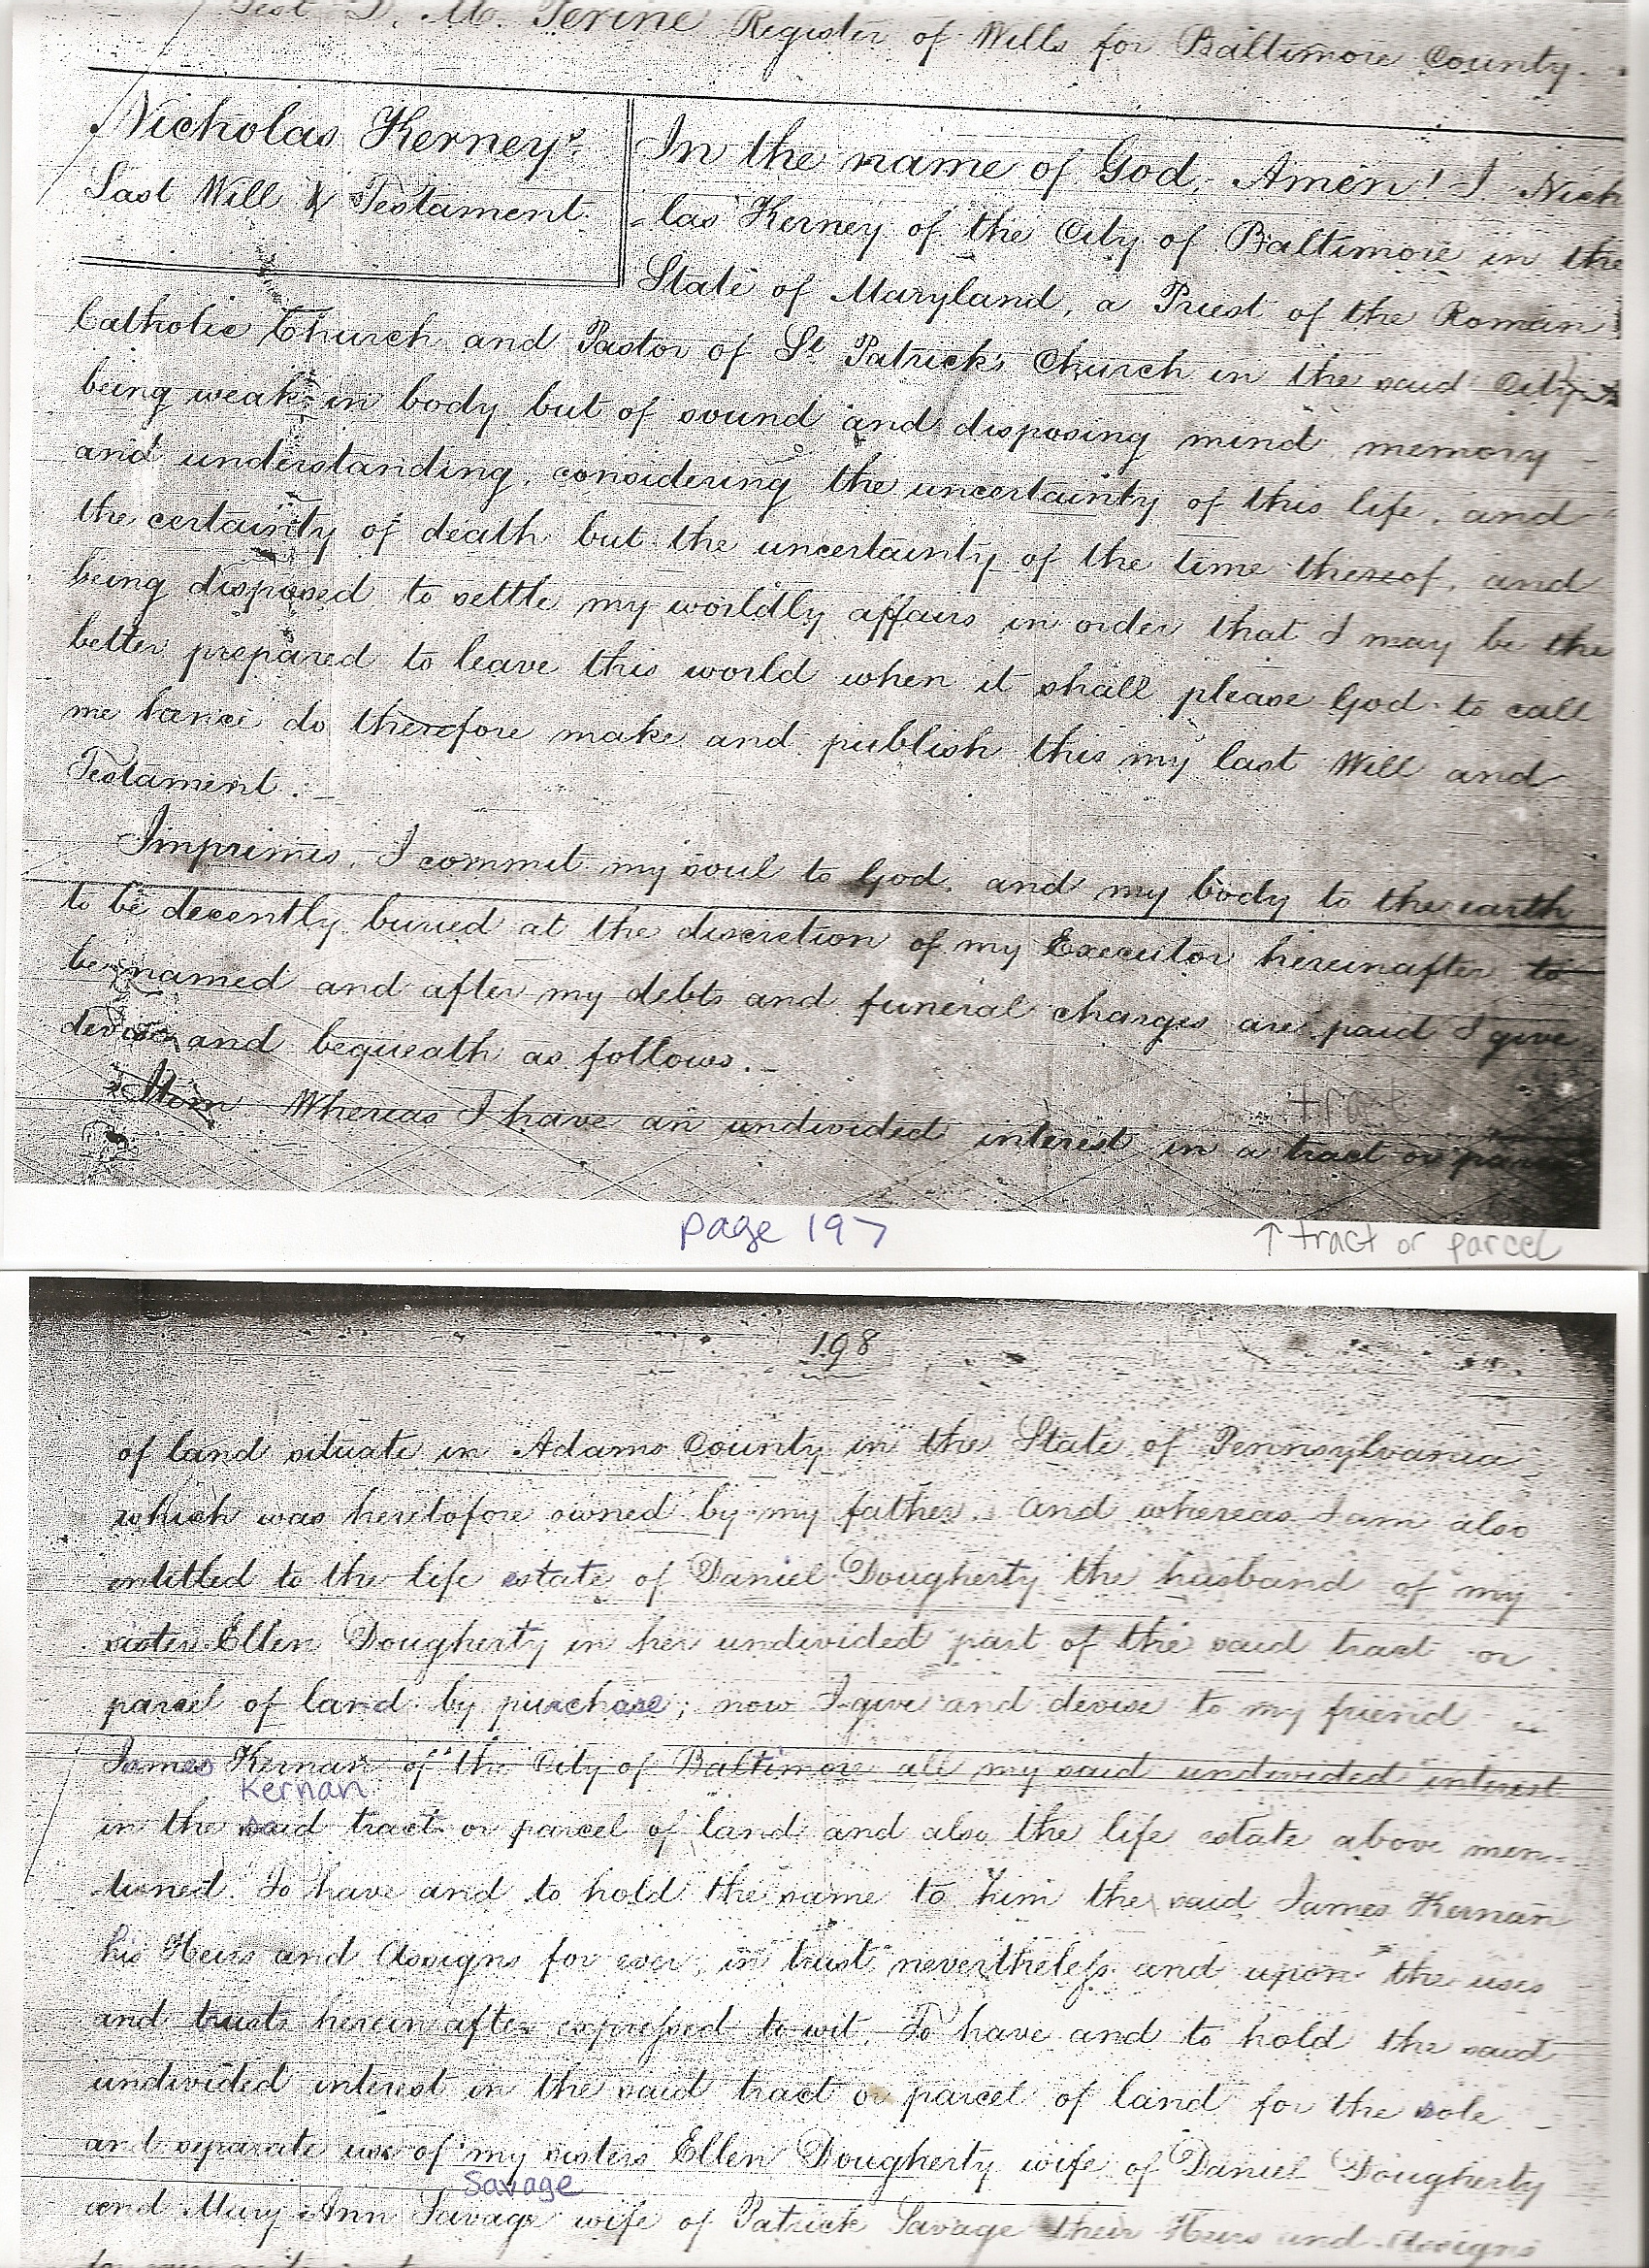 Test D. M. Perine Register of Wills for Baltimore County.
Nicholas Kerney's
Last Will & Testament
In the name of God, Amen! I Nich
-las Kerney of the City of Baltimore in the
State of Maryland, a Priest of the Roman
Catholic Church and Pastor of St Patrick's Church in the said City
being weak in body but of sound and disposing mind memory
and understanding, considering the uncertainty of this life, and
the certainty of death but the uncertainty of the time thereof, and
being disposed to settle my worldly affairs in order that I may be the
better prepared to leave this world when it shall please God to call
me hence do therefore make and publish this my last Will and
Testament.
Imprimis, I commit my soul to God, and my body to the earth
to be decently buried at the discretion of my Executor hereinafter to
be named and after my debts and funeral charges are paid I give
devise and bequeath as follows.
Item Whereas I have an undivided interest in a tract or
tract
page 197
↑ tract or parcel
198
of land situate in Adams County in the State of Pennsylvania
which was heretofore owned by my father. And whereas I am also
entitled to the life estate of Daniel Dougherty the husband of my
sister Ellen Dougherty in her undivided part of the said tract or
parcel of land by purchase; now I give and devise to my friend
James Kernan of the City of Baltimore all my said undivided interest
Kernan
in the said tract or parcel of land and also the life estate above men-
-tioned. To have and to hold the same to him the said James Kernan
his Heirs and Assigns for ever, in trust nevertheless and upon the uses
and trusts herein after expressed to wit, To have and to hold the said
undivided interest in the said tract or parcel of land for the sole
and separate use of my sisters Ellen Dougherty wife of Daniel Dougherty
Savage
and Mary Ann Savage wife of Patrick Savage their Heirs and Assigns